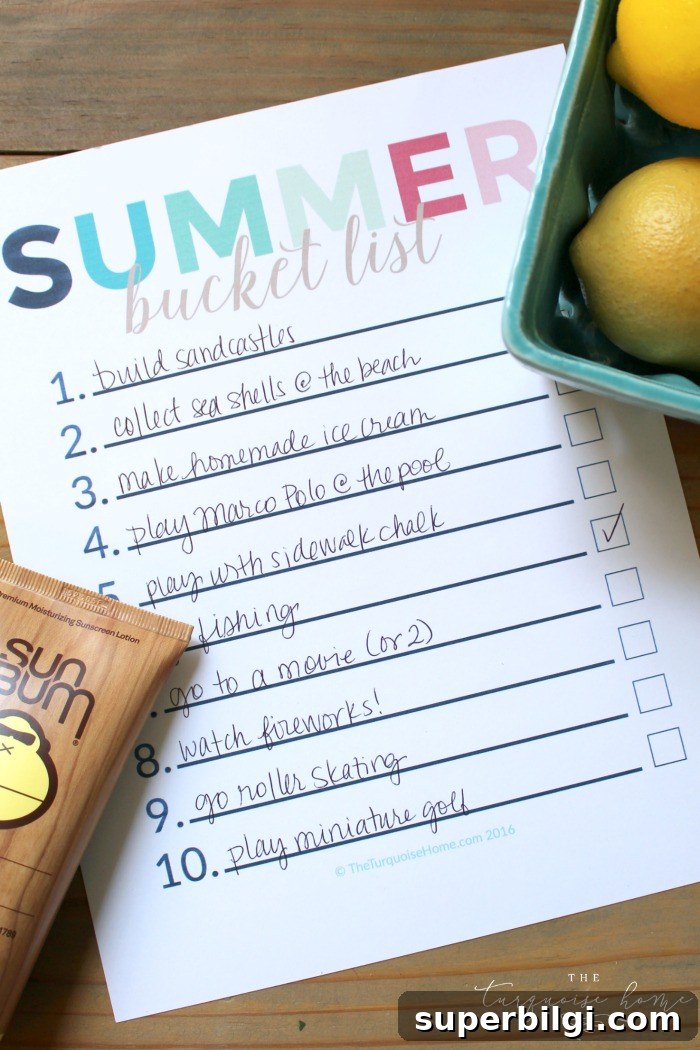 SUMMER
bucket list
1. build sandcastles
2. collect sea shells @ the beach
3. make homemade ice cream
4. play Marco Polo @ the pool
5. play with sidewalk chalk
fishing
. go to a movie (or 2)
8. watch fireworks!
9. go roller skating
10. play miniature golf
© TheTurquoiseHome.com 2016
Premium Moisturizing Sunscreen Lotion
SUN
BUM
®
THE
turquoise home
superbilgi.com